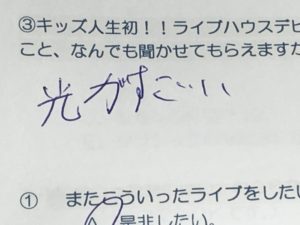 ③キッズ人生初！！ライブハウスデビ
こと、なんでも聞かせてもらえますか
光がすごい
① またこういったライブをしたい
是非したい。